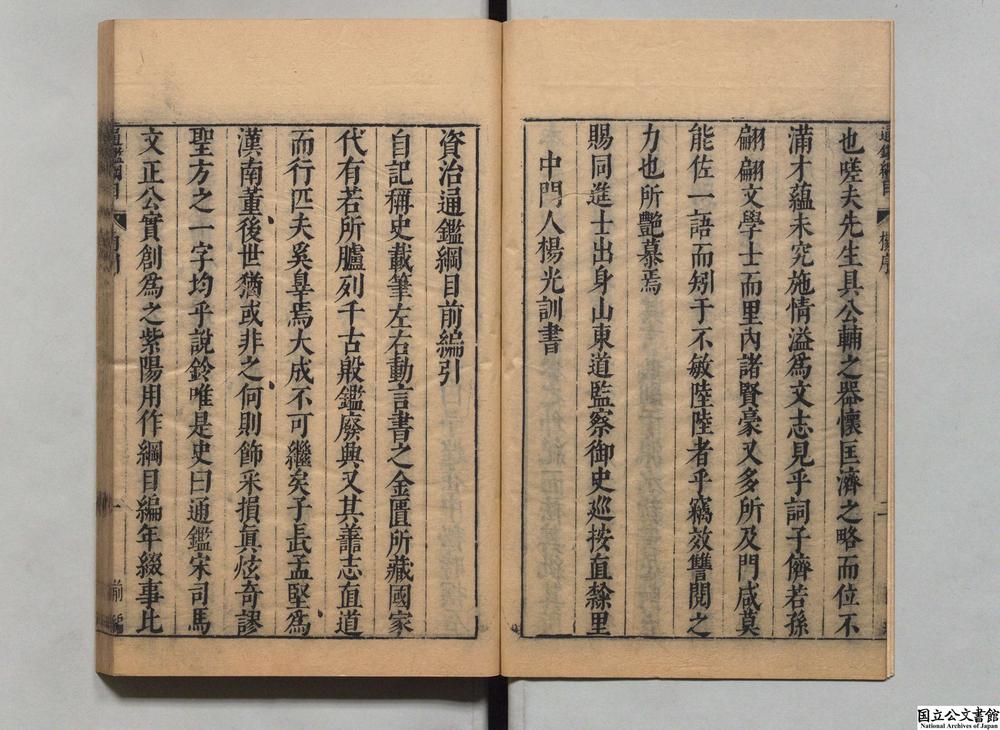 也嗟夫先生具公輔之器懷匡濟之略而位不
滿才蘊未究施情溢爲文志見乎詞子儕若孫
翩翩文學士而里內諸賢豪又多所及門咸莫
能佐一語而矧于不敏陸陸者乎竊效讐閱之
力也所艷慕焉
賜同進士出身山東道監察御史巡按直隸里
中門人楊光訓書
資治通鑑綱目前編引
自記稱史載筆左右動言書之金匱所藏國家
代有若所臚列千古般鑑廢興又其善志直道
而行匹夫奚辠焉大成不可繼矣子長孟堅爲
漢南董後世猶或非之何則飾采損眞炫奇謬
聖方之一字均乎說鈴唯是史曰通鑑宋司馬
文正公實創爲之紫陽用作綱目編年綴事比
通鑑綱目
一
前編
通鑑綱目
楊序
二
国立公文書館
National Archives of Japan